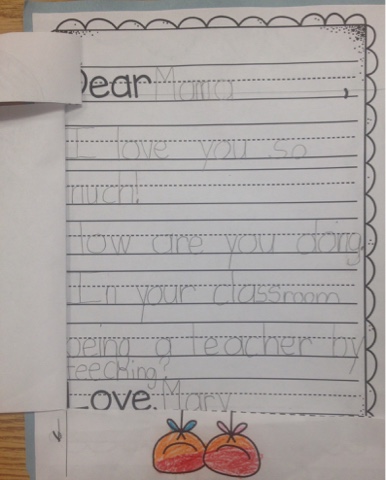 Dear Mama ,
I love you so
much!
How are you doing
In your classmom
being a teacher by
teecking?
Love, Mary